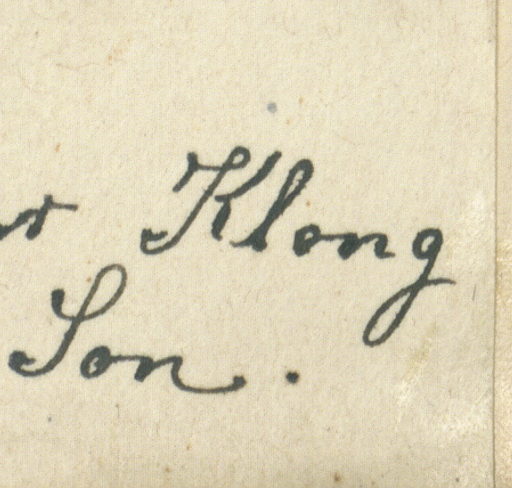 Klong
Son.